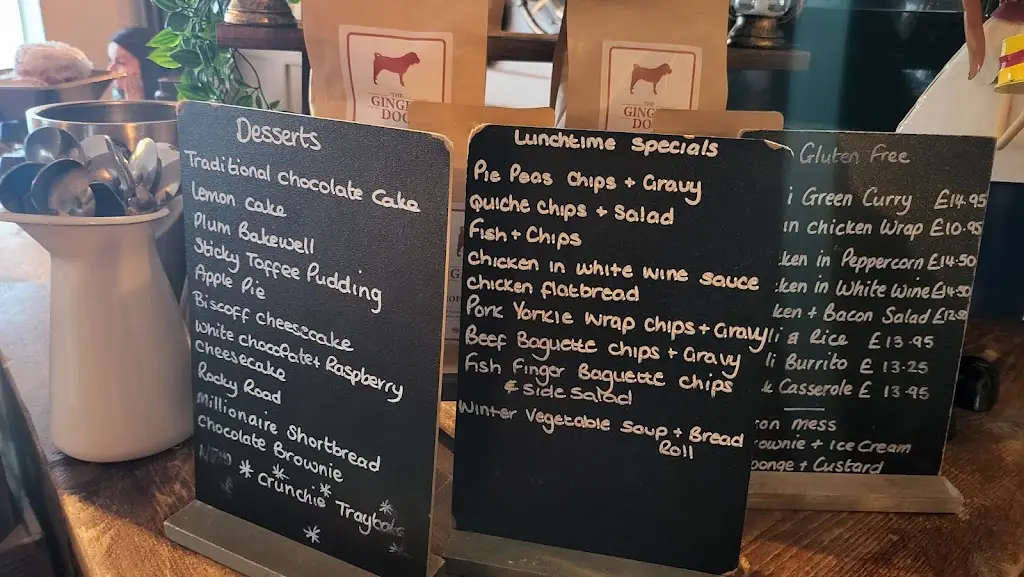 THE
GINGER
DOG
THE
GING
DOG
Desserts
Traditional chocolate Cake
Lemon cake
Plum Bakewell
Sticky Toffee Pudding
Apple Pie
Biscoff cheesecake
white chocolate + Raspberry
cheesecake
Rocky Road
Millionaire Shortbread
chocolate Brownie
Crunchie Traybake
Lunchtime specials
Pie Peas Chips + Gravy
Quiche Chips + Salad
Fish + Chips
Chicken in white wine sauce
chicken flatbread
Pork Yorkie Wrap chips + Gravy
Beef Baguette chips + Gravy
Fish Finger Baguette chips
& Side Salad
Winter Vegetable Soup + Bread
Roll
Gluten Free
i Green Curry £14.95
chicken Wrap £10.95
ken in Peppercorn £14.50
ken in White Wine £14.50
ken + Bacon Salad £12.50
li & Rice £13.95
li Burrito £ 13.25
k Casserole £ 13.95
on mess
rownie + Ice Cream
ponge + Custard